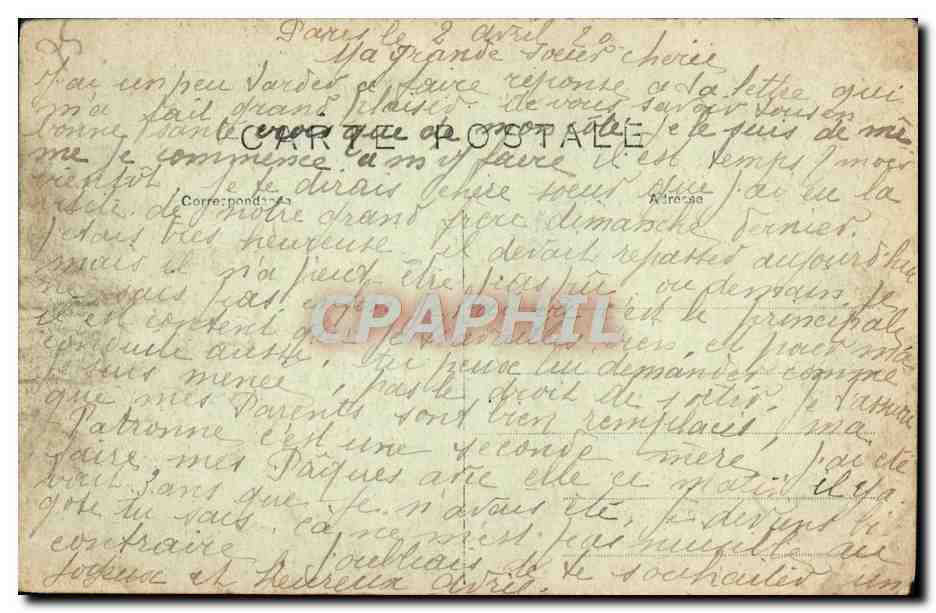 Paris le 2 avril 20
Ma grande soeur cherie
J'ai un peu tarder a faire reponse a ta lettre qui
m'a fait grand plaisir de vous savoir tous en
bonne sante crois que de mon côté je le suis de mê
CARTE POSTALE
me je commence a m'y faire il est temps 2 mois
bientôt, je te dirais chere soeur que j'ai eu la
Correspondance
Adresse
visite de notre grand frere dimanche dernier.
j'etais tres heureuse il devait repasser aujourd'hui
mais il n'a peut être pas pu ou demain je
ne sais pas c'est le principale
CPAPHIL
il est content
conduite aussi, tu peux lui demander comme
je suis menée, pas le droit de sortir. je t'assure
que mes Parents sont bien remplacés, ma
Patronne c'est une seconde mère, j'ai été
faire mes Pâques avec elle ce matin il y a
bout 3 ans que je n'avais été, je devient bi
gote tu sais ça ne m'est pas nuisible au
contraire j'oubliais de te souhaiter un
Joyeux et heureux avril.